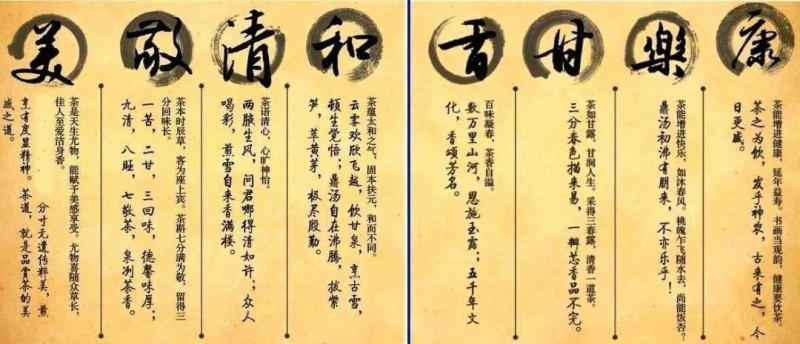 康
茶能增进健康，延年益寿。书画当观韵，健康要饮茶。
茶之为饮，发乎神农，古来有之，今
日更盛。
樂
茶能增进快乐，如沐春风。桃魄乍飞随水去，尚能饭否？
鼎汤初沸有朋来，不亦乐乎！
甘
茶如甘露，甘润人生。采得三春露，清香一道茶。
三分春色描来易，一瓣芯香品不完。
香
百味凝春，茶香自溢。
数万里山河，恩施玉露；五千年文
化，香颂芳名。
和
茶蕴太和之气，固本扶元，和而不同。
云雾欢欣飞越，饮甘泉，烹古雪，
顿生觉悟；鼎汤自在沸腾，拔紫
笋，萃黄芽，极尽殷勤。
清
茶语清心，心旷神怡。
两腋生风，问君哪得清如许；众人
喝彩，煎雪自来香满楼。
敬
茶本时辰草，客为座上宾。茶斟七分满为敬，留得三
分回味长。
一苦，二甘，三回味，德馨味厚；
九清，八旺，七敬茶，泉冽茶香。
美
茶是天生尤物，能赋予美感享受。尤物喜随众草长，
佳人至爱洁身香。
分寸无遗传粹美，煎
烹有度显精神。茶道，就是品赏茶的美
感之道。